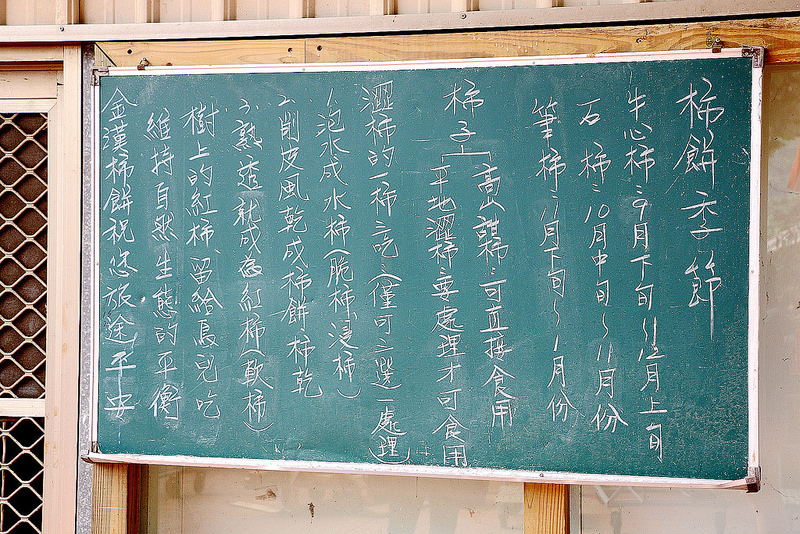 柿餅季節
牛心柿：9月下旬～12月上旬
石柿：10月中旬～11月份
筆柿：11月下旬～1月份
柿子
高山甜柿：可直接食用
平地澀柿：要處理才可食用
澀柿的一柿三吃（僅可三選一處理）
1.泡水成水柿（脆柿.浸柿）
2.削皮風乾成柿餅.柿乾
3.熟透就成為紅柿（軟柿）
樹上的紅柿.留給鳥兒吃
維持自然生態的平衡
金漢柿餅祝您旅途平安